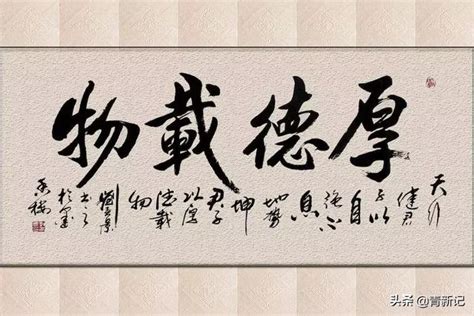 厚德載物
天行
健君
子以
自
強不
息
地勢
坤
君子
以厚
德載
物
書之
头条 @箐新记